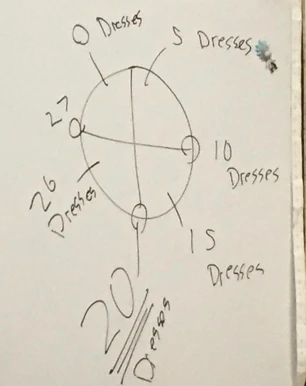 0 Dresses
5 Dresses
27
10
Dresses
26
Dresses
15
Dresses
20
Dresses